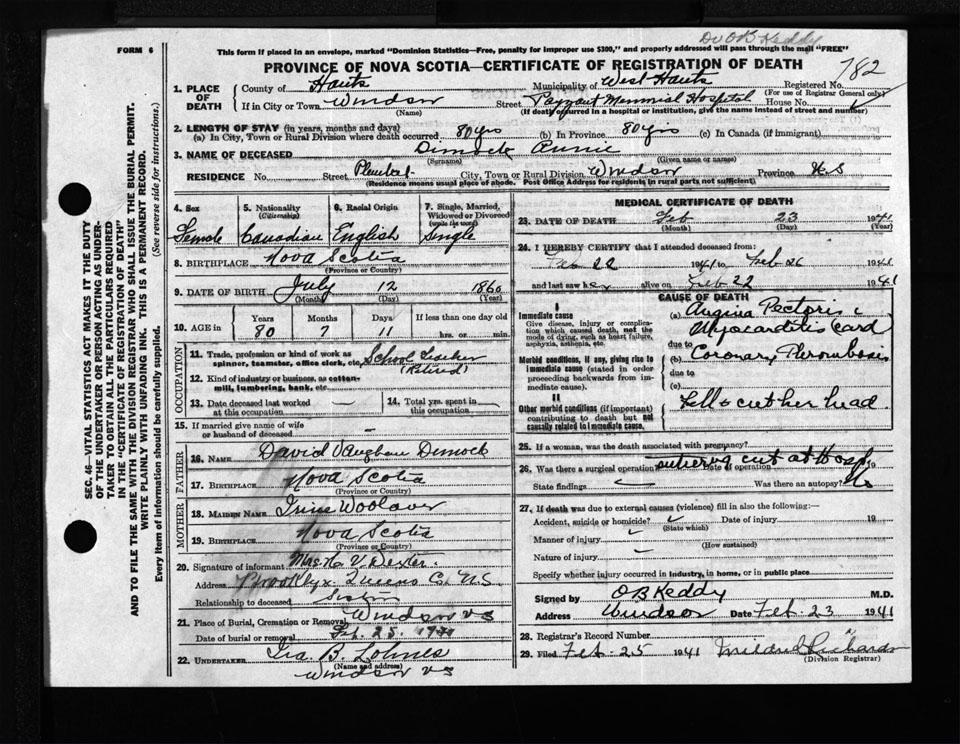 Dr OB Keddy
FORM 6
This form if placed in an envelope, marked "Dominion Statistics—Free, penalty for improper use $300," and properly addressed will pass through the mail "FREE"
PROVINCE OF NOVA SCOTIA—CERTIFICATE OF REGISTRATION OF DEATH
782
1. PLACE OF DEATH
County of Hants Municipality of West Hants Registered No.
(For use of Registrar General only)
If in City or Town Windsor Street Payzant Memorial Hospital House No.
(Name) (If death occurred in a hospital or institution, give the name instead of street and number)
2. LENGTH OF STAY (in years, months and days)
(a) In City, Town or Rural Division where death occurred 80 yrs (b) In Province 80 yrs (c) In Canada (if immigrant)
3. NAME OF DECEASED Dimock Annie
(Surname) (Given name or names)
RESIDENCE No. Street City, Town or Rural Division Windsor Province N S
(Residence means usual place of abode. Post Office Address for residents in rural parts not sufficient)
4. Sex 5. Nationality (Citizenship) 6. Racial Origin 7. Single, Married, Widowed or Divorced (write the word)
Female Canadian English Single
8. BIRTHPLACE Nova Scotia
(Province or Country)
9. DATE OF BIRTH July 12 1860
(Month) (Day) (Year)
10. AGE in Years Months Days If less than one day old
80 7 11 hrs. or min.
OCCUPATION
11. Trade, profession or kind of work as spinner, teamster, office clerk, etc. School Teacher (Retired)
12. Kind of industry or business, as cotton-mill, lumbering, bank, etc.
13. Date deceased last worked at this occupation — 14. Total yrs. spent in this occupation —
15. If married give name of wife or husband of deceased —
FATHER
16. NAME David Vaughan Dimock
17. BIRTHPLACE Nova Scotia
(Province or Country)
MOTHER
18. MAIDEN NAME Woolaver
19. BIRTHPLACE Nova Scotia
(Province or Country)
20. Signature of informant Mrs. V. Dexter.
Address Queens Co. N.S.
Relationship to deceased Sister
21. Place of Burial, Cremation or Removal Windsor N S
Date of burial or removal Feb. 25. 1941
22. UNDERTAKER Ira B. Lohnes
(Name and address)
Windsor N S
MEDICAL CERTIFICATE OF DEATH
23. DATE OF DEATH Feb 23 1941
(Month) (Day) (Year)
24. I HEREBY CERTIFY that I attended deceased from:
Feb 22 1941 to Feb 26 1941
and last saw her alive on Feb 22 1941
CAUSE OF DEATH
I
Immediate cause
Give disease, injury or complication which caused death, not the mode of dying, such as heart failure, asphyxia, asthenia, etc.
(a) Angina Pectoris
Myocarditis Card
due to
Morbid conditions, if any, giving rise to immediate cause (stated in order proceeding backwards from immediate cause).
(b) Coronary Thrombosis
due to
(c)
II
Other morbid conditions (if important) contributing to death but not causally related to immediate cause.
Fell & cut her head.
25. If a woman, was the death associated with pregnancy?
26. Was there a surgical operation? suturing cut at Hosp Date of operation 19
State findings — Was there an autopsy? No
27. If death was due to external causes (violence) fill in also the following:—
Accident, suicide or homicide? Date of injury 19
(State which)
Manner of injury
(How sustained)
Nature of injury —
Specify whether injury occurred in industry, in home, or in public place
Signed by OB Keddy M.D.
Address Windsor Date Feb. 23 1941
28. Registrar's Record Number
29. Filed Feb-25 1941 Mildred Richards
(Division Registrar)
SEC. 46—VITAL STATISTICS ACT MAKES IT THE DUTY
OF THE UNDERTAKER OR PERSON ACTING AS UNDER-
TAKER TO OBTAIN ALL THE PARTICULARS REQUIRED
IN THE "CERTIFICATE OF REGISTRATION OF DEATH"
AND TO FILE THE SAME WITH THE DIVISION REGISTRAR WHO SHALL ISSUE THE BURIAL PERMIT.
WRITE PLAINLY WITH UNFADING INK. THIS IS A PERMANENT RECORD.
Every item of Information should be carefully supplied. (See reverse side for instructions.)